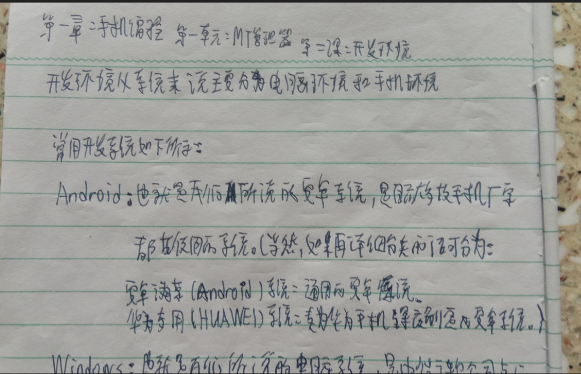 第一章:手机编程 第一单元:MT管理器 第二课:开发环境
开发环境从系统来说主要分为电脑环境和手机环境
常用开发系统如下所示:
Android:也就是我们所说的安卓系统,是目前大多数手机厂家
都在使用的系统。(当然,如果再详细分类的话可分为:
安卓清菜(Android)系统:通用的安卓系统。
华为专用(HUAWEI)系统:专为华为手机深度制定的安卓系统。)
Windows:也就是我们所说的电脑系统,是由微软公司